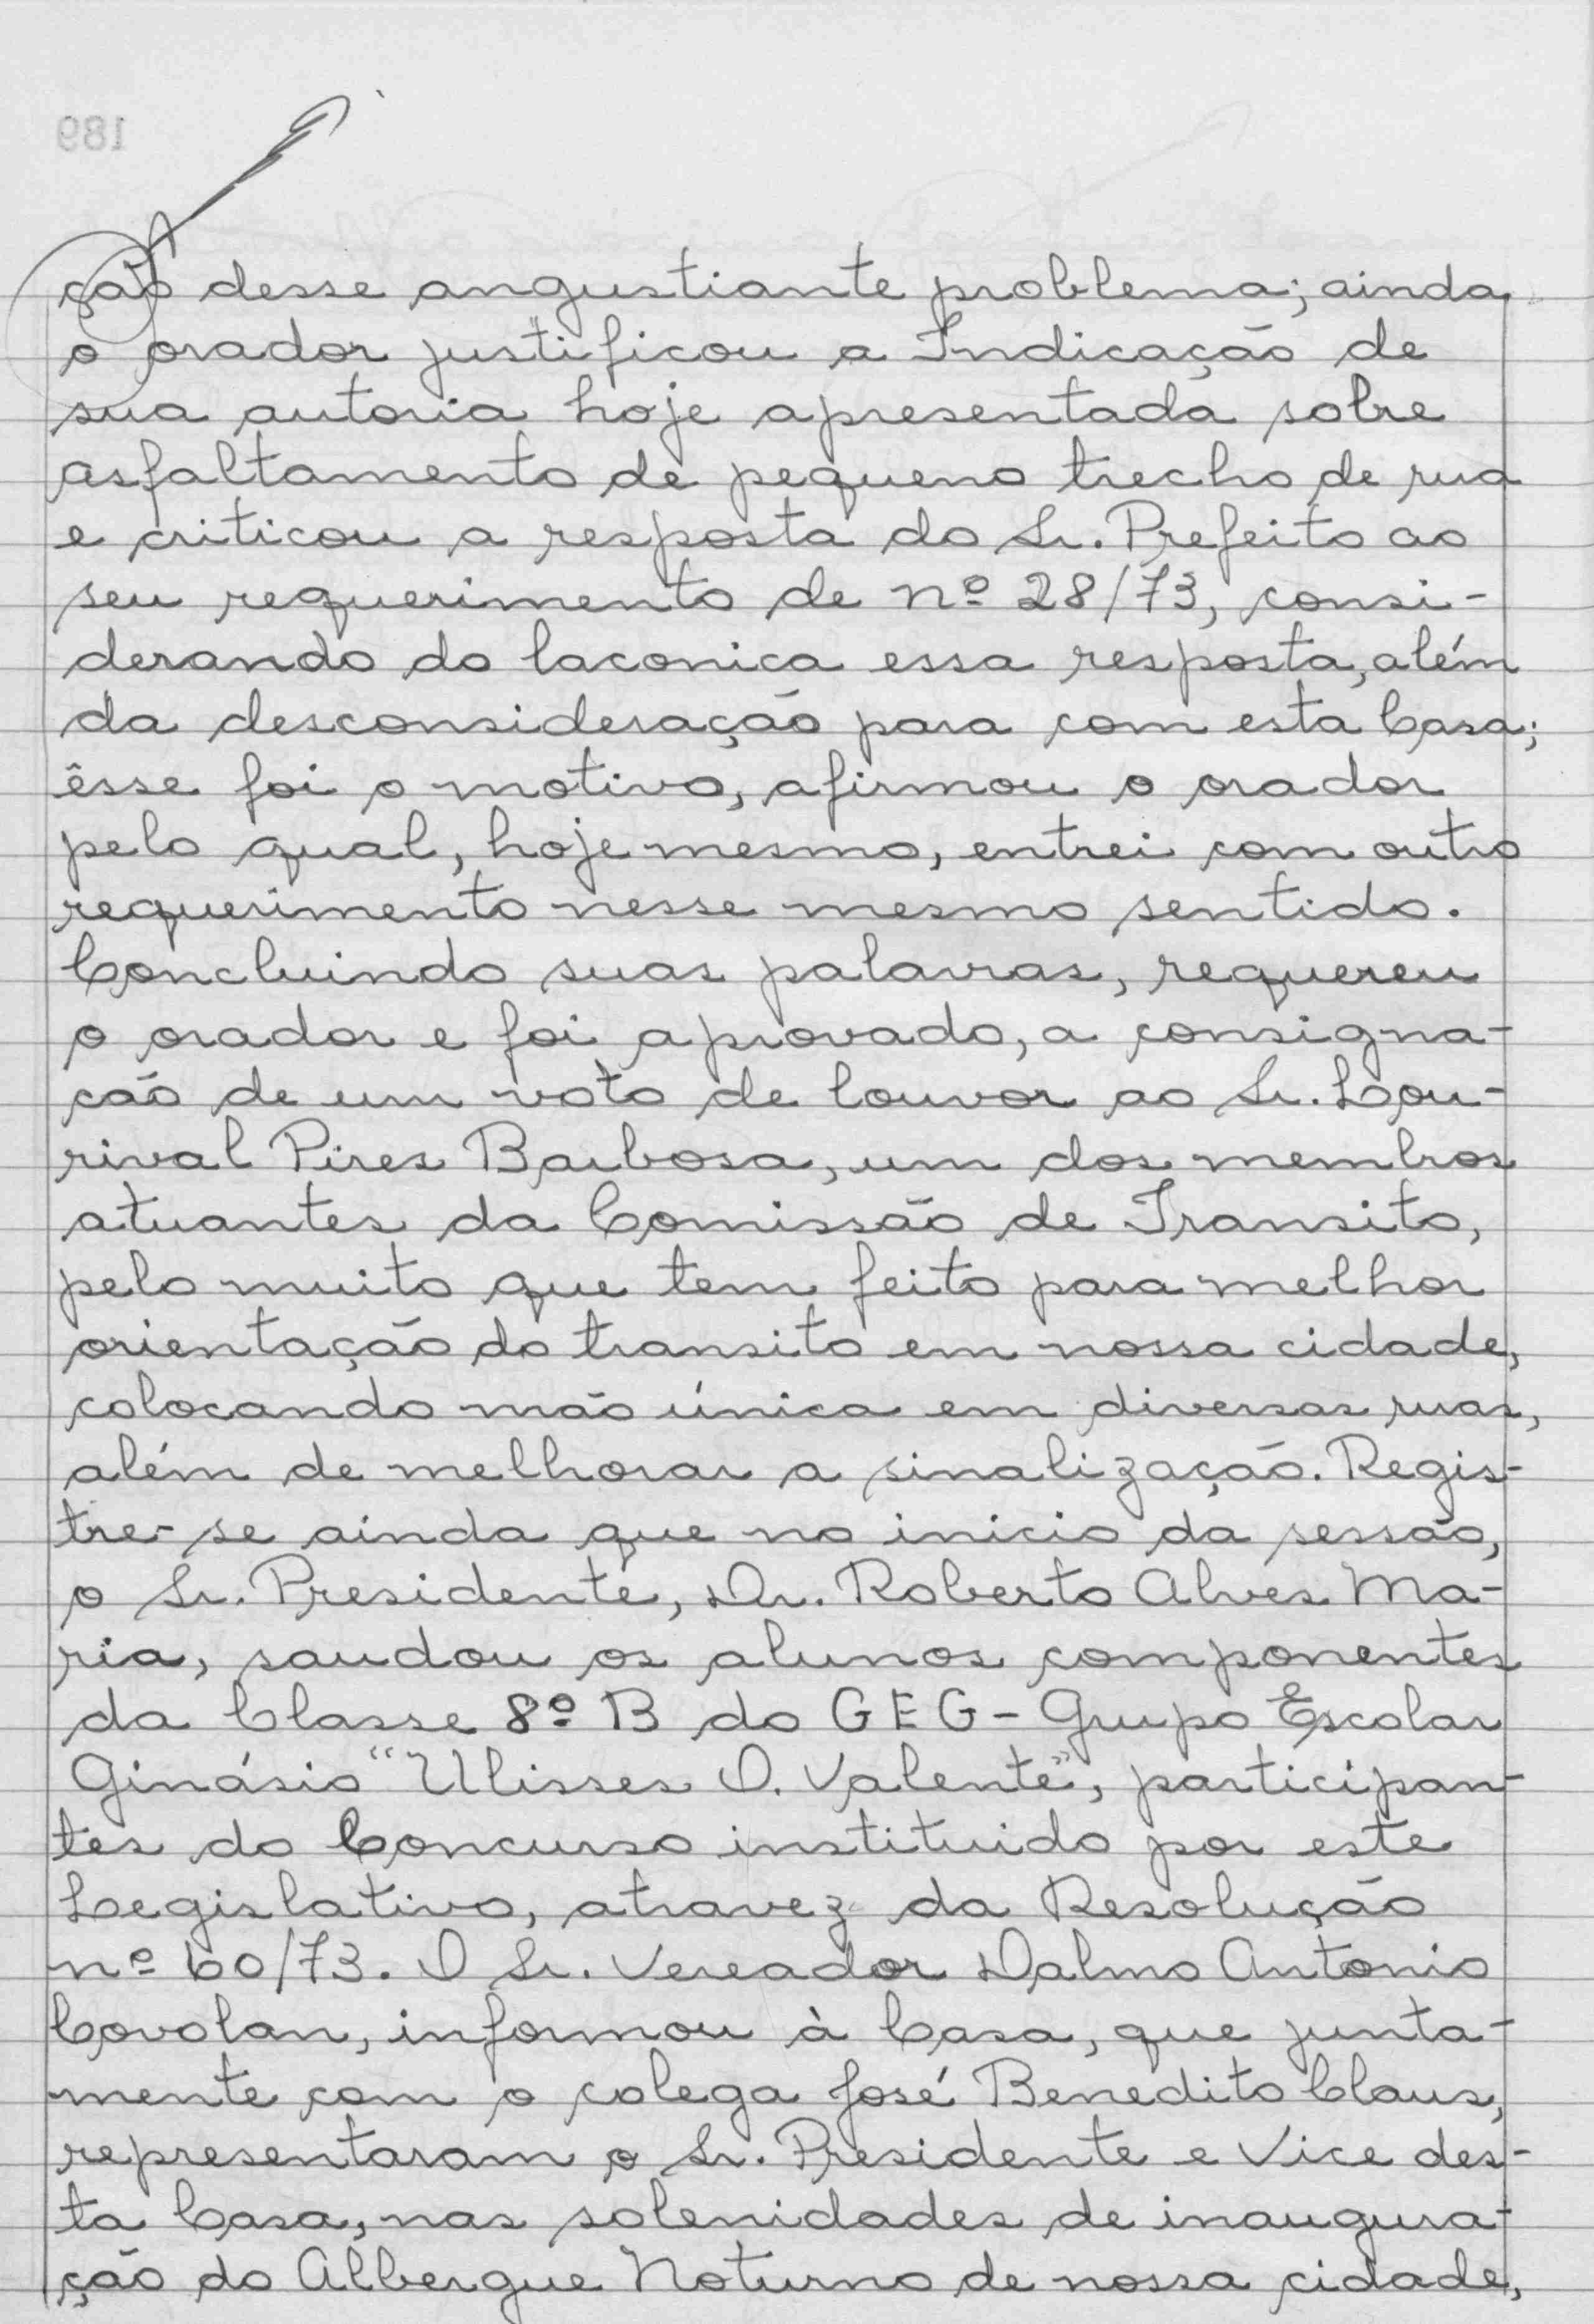 189
ção desse angustiante problema; ainda
o orador justificou a Indicação de
sua autoria hoje apresentada sobre
asfaltamento de pequeno trecho de rua
e criticou a resposta do Sr. Prefeito ao
seu requerimento de nº 28/73, consi-
derando do laconica essa resposta, além
da desconsideração para com esta Casa;
êsse foi o motivo, afirmou o orador
pelo qual, hoje mesmo, entrei com outro
requerimento nesse mesmo sentido.
Concluindo suas palavras, requereu
o orador e foi aprovado, a consigna-
ção de um voto de louvor ao Sr. Lou-
rival Pires Barbosa, um dos membros
atuantes da Comissão de Transito,
pelo muito que tem feito para melhor
orientação do transito em nossa cidade,
colocando mão única em diversas ruas,
além de melhorar a sinalização. Regis-
tre-se ainda que no inicio da sessão,
o Sr. Presidente, Dr. Roberto Alves Ma-
ria, saudou os alunos componentes
da Classe 8º B do GEG - Grupo Escolar
Ginásio "Ulisses O. Valente", participan-
tes do Concurso instituido por este
Legislativo, atravez da Resolução
nº 60/73. O Sr. Vereador Dalmo Antonio
Covolan, informou à Casa, que junta-
mente com o colega José Benedito Claus,
representaram o Sr. Presidente e Vice des-
ta Casa, nas solenidades de inaugura-
ção do Albergue Noturno de nossa cidade,